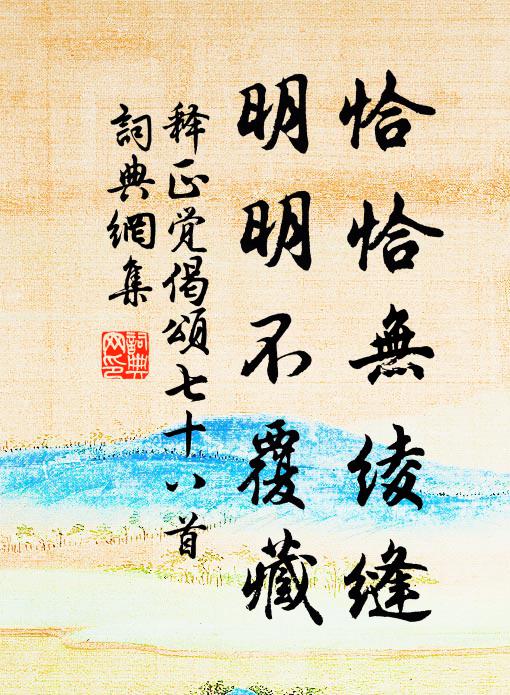 恰恰無綾縫
明明不覆藏
释正觉偈頌七十八首
詞典網集
詞典网印